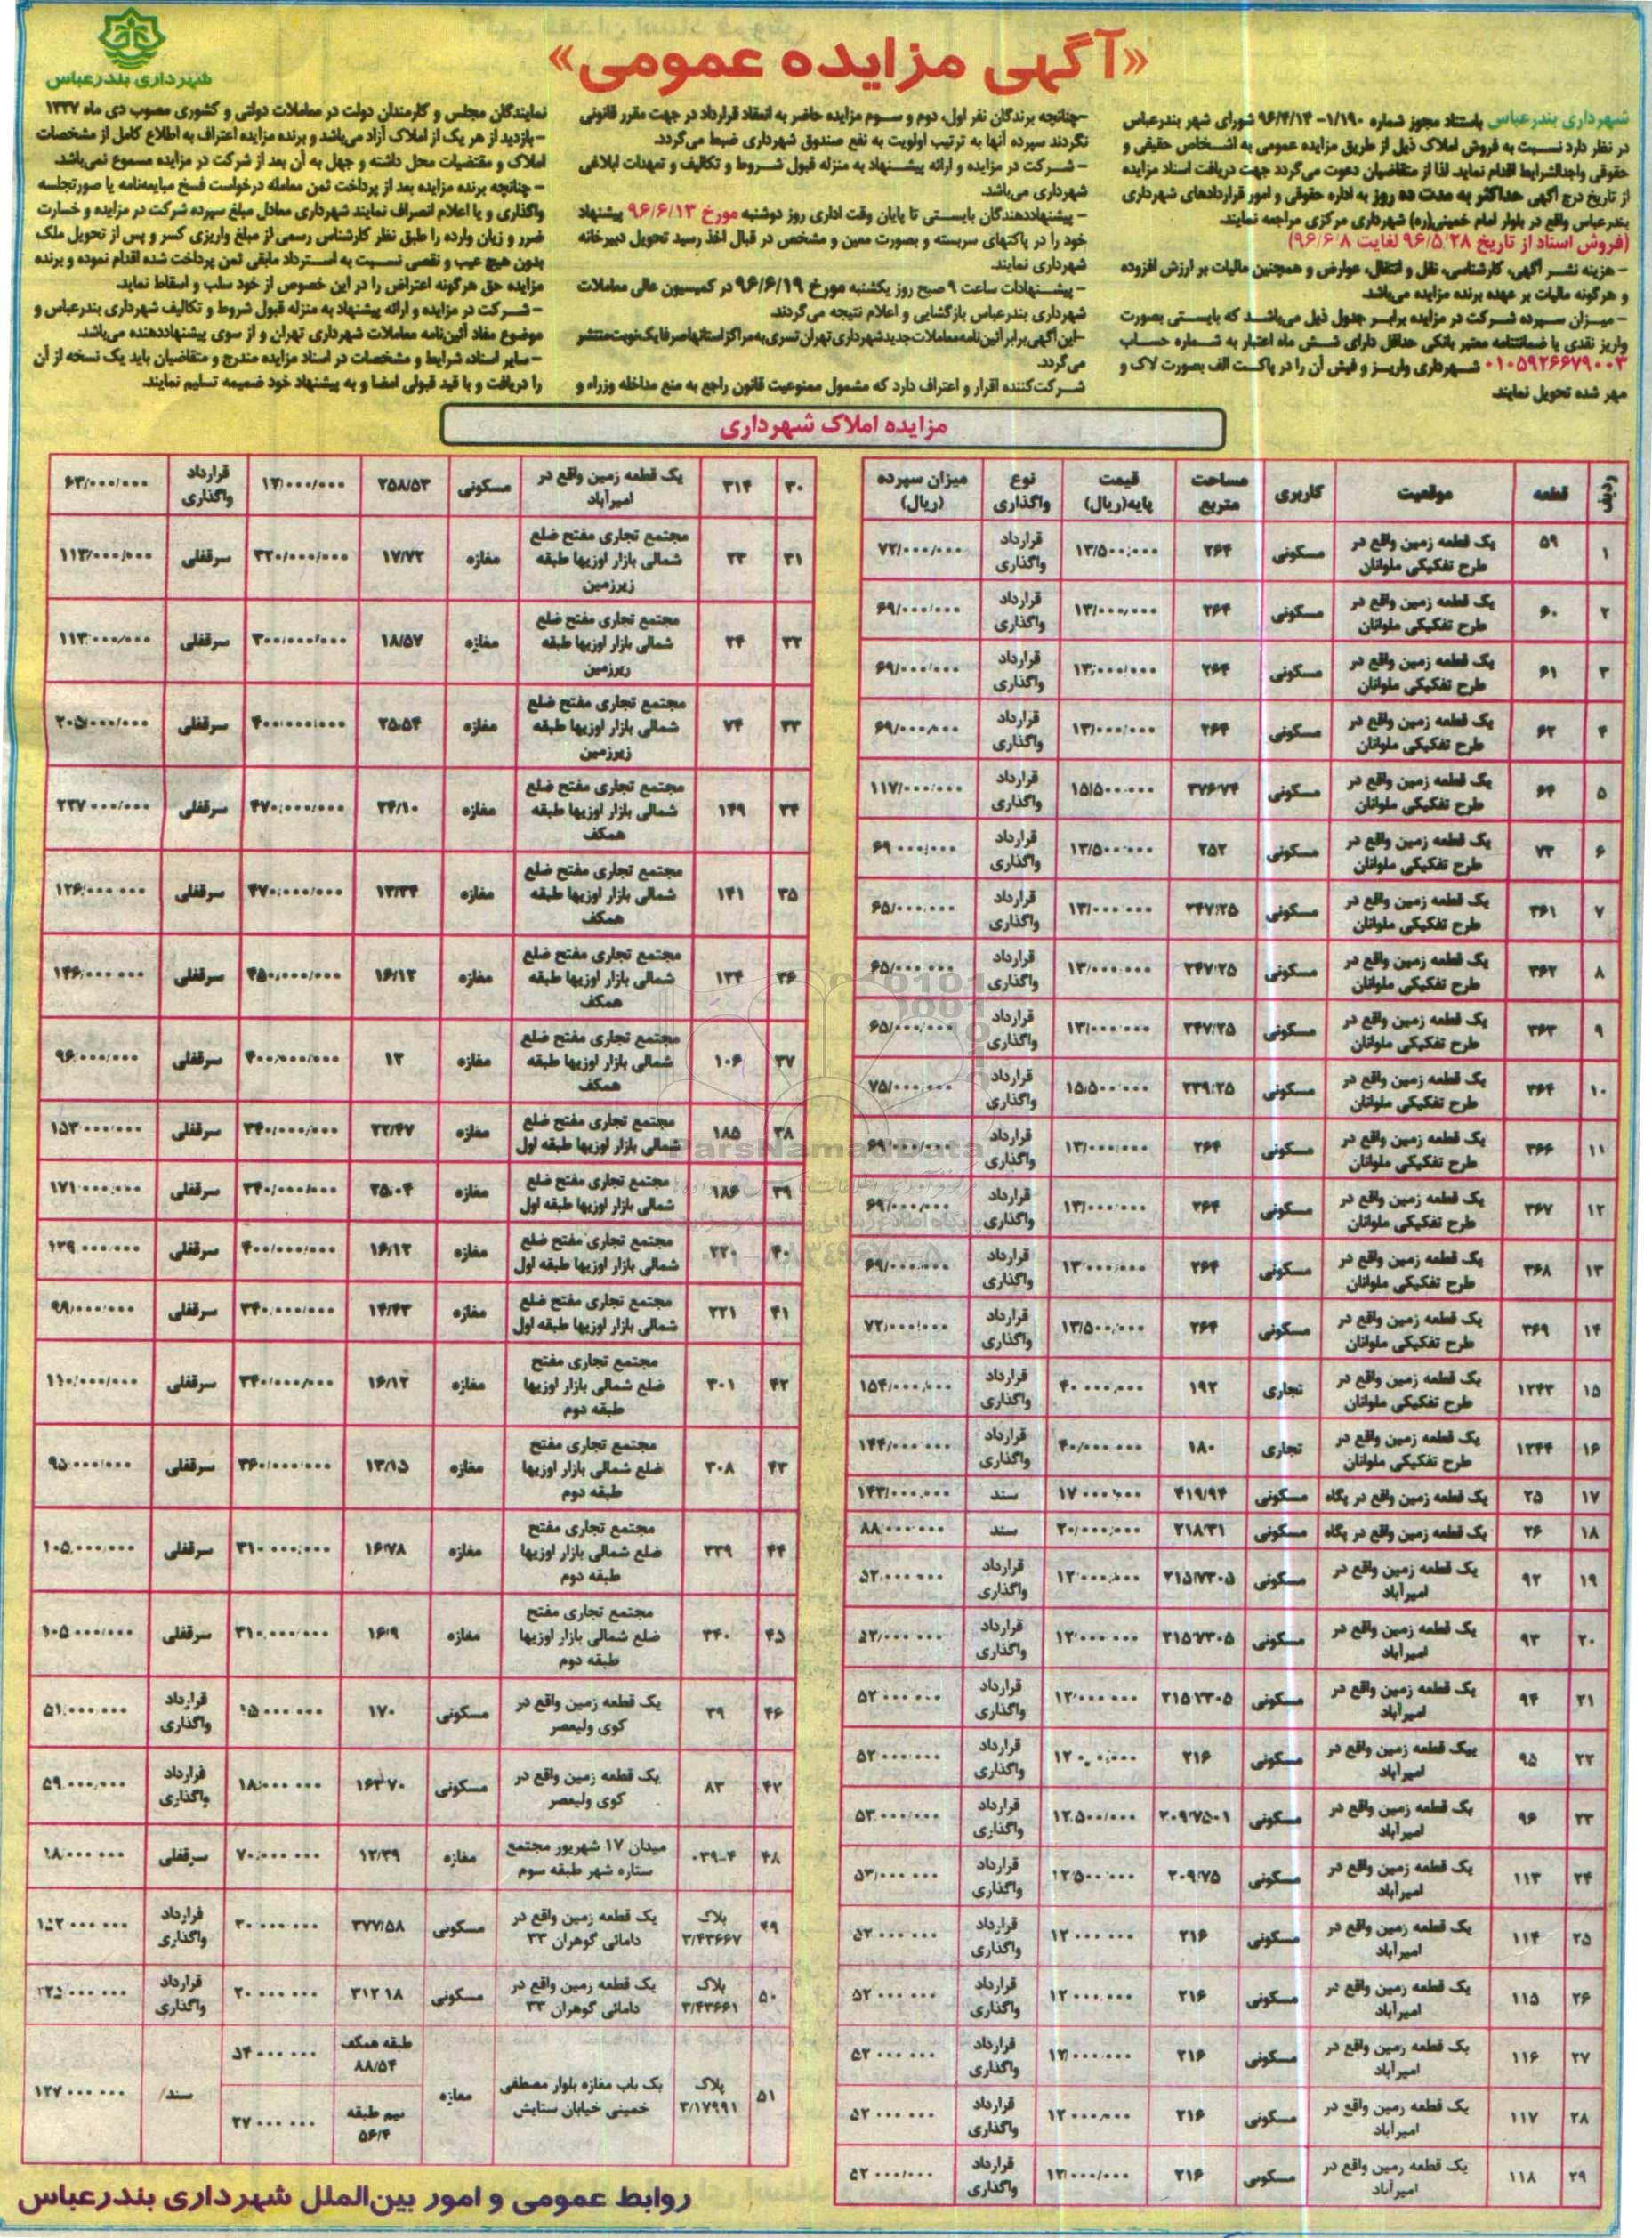 «آگهی مزایده عمومی»
شهرداری بندرعباس
شهرداری بندرعباس باستناد مجوز شماره ۱/۱۹۰- ۹۶/۴/۱۴ شورای شهر بندرعباس
در نظر دارد نسبت به فروش املاک ذیل از طریق مزایده عمومی به اشخاص حقیقی و
حقوقی واجدالشرایط اقدام نماید. لذا از متقاضیان دعوت می‌گردد جهت دریافت اسناد مزایده
از تاریخ درج آگهی حداکثر به مدت ده روز به اداره حقوقی و امور قراردادهای شهرداری
بندرعباس واقع در بلوار امام خمینی(ره) شهرداری مرکزی مراجعه نمایند.
(فروش اسناد از تاریخ ۹۶/۵/۲۸ لغایت ۹۶/۶/۸)
- هزینه نشر آگهی، کارشناسی، نقل و انتقال، عوارض و همچنین مالیات بر ارزش افزوده
و هرگونه مالیات بر عهده برنده مزایده می‌باشد.
- میزان سپرده شرکت در مزایده برابر جدول ذیل می‌باشد که بایستی بصورت
واریز نقدی یا ضمانتنامه معتبر بانکی حداقل دارای شش ماه اعتبار به شماره حساب
۰۱۰۵۹۲۶۶۷۹۰۰۳ شهرداری واریز و فیش آن را در پاکت الف بصورت لاک و
مهر شده تحویل نمایند.
-چنانچه برندگان نفر اول، دوم و سوم مزایده حاضر به انعقاد قرارداد در جهت مقرر قانونی
نگردند سپرده آنها به ترتیب اولویت به نفع صندوق شهرداری ضبط می‌گردد.
- شرکت در مزایده و ارائه پیشنهاد به منزله قبول شروط و تکالیف و تعهدات ابلاغی
شهرداری می‌باشد.
- پیشنهاددهندگان بایستی تا پایان وقت اداری روز دوشنبه مورخ ۹۶/۶/۱۳ پیشنهاد
خود را در پاکتهای سربسته و بصورت معین و مشخص در قبال اخذ رسید تحویل دبیرخانه
شهرداری نمایند.
- پیشنهادات ساعت ۹ صبح روز یکشنبه مورخ ۹۶/۶/۱۹ در کمیسیون عالی معاملات
شهرداری بندرعباس بازگشایی و اعلام نتیجه می‌گردند.
-این آگهی برابر آئین‌نامه معاملات جدید شهرداری تهران تسری به مراکز استانها صرفا یک نوبت منتشر
می‌گردد.
شرکت‌کننده اقرار و اعتراف دارد که مشمول ممنوعیت قانون راجع به منع مداخله وزراء و
نمایندگان مجلس و کارمندان دولت در معاملات دولتی و کشوری مصوب دی ماه ۱۳۳۷
-بازدید از هر یک از املاک آزاد می‌باشد و برنده مزایده اعتراف به اطلاع کامل از مشخصات
املاک و مقتضیات محل داشته و جهل به آن بعد از شرکت در مزایده مسموع نمی‌باشد.
- چنانچه برنده مزایده بعد از پرداخت ثمن معامله درخواست فسخ مبایعه‌نامه یا صورتجلسه
واگذاری و یا اعلام انصراف نمایند شهرداری معادل مبلغ سپرده شرکت در مزایده و خسارت
ضرر و زیان وارده را طبق نظر کارشناس رسمی از مبلغ واریزی کسر و پس از تحویل ملک
بدون هیچ عیب و نقصی نسبت به استرداد مابقی ثمن پرداخت شده اقدام نموده و برنده
مزایده حق هرگونه اعتراض را در این خصوص از خود سلب و اسقاط نماید.
- شرکت در مزایده و ارائه پیشنهاد به منزله قبول شروط و تکالیف شهرداری بندرعباس و
موضوع مفاد آئین‌نامه معاملات شهرداری تهران و از سوی پیشنهاددهنده می‌باشد.
-سایر اسناد، شرایط و مشخصات در اسناد مزایده مندرج و متقاضیان باید یک نسخه از آن
را دریافت و با قید قبولی امضا و به پیشنهاد خود ضمیمه تسلیم نمایند.
مزایده املاک شهرداری
ردیف قطعه موقعیت کاربری مساحت متربع قیمت پایه(ریال) نوع واگذاری میزان سپرده (ریال)
۱ ۵۹ یک قطعه زمین واقع در طرح تفکیکی ملوانان مسکونی ۲۶۴ ۱۳/۵۰۰/۰۰۰ قرارداد واگذاری ۷۲/۰۰۰/۰۰۰
۲ ۶۰ یک قطعه زمین واقع در طرح تفکیکی ملوانان مسکونی ۲۶۴ ۱۳/۰۰۰/۰۰۰ قرارداد واگذاری ۶۹/۰۰۰/۰۰۰
۳ ۶۱ یک قطعه زمین واقع در طرح تفکیکی ملوانان مسکونی ۲۶۴ ۱۳/۰۰۰/۰۰۰ قرارداد واگذاری ۶۹/۰۰۰/۰۰۰
۴ ۶۲ یک قطعه زمین واقع در طرح تفکیکی ملوانان مسکونی ۲۶۴ ۱۳/۰۰۰/۰۰۰ قرارداد واگذاری ۶۹/۰۰۰/۰۰۰
۵ ۶۴ یک قطعه زمین واقع در طرح تفکیکی ملوانان مسکونی ۳۷۶/۷۴ ۱۵/۵۰۰/۰۰۰ قرارداد واگذاری ۱۱۷/۰۰۰/۰۰۰
۶ ۷۳ یک قطعه زمین واقع در طرح تفکیکی ملوانان مسکونی ۲۵۲ ۱۳/۵۰۰/۰۰۰ قرارداد واگذاری ۶۹/۰۰۰/۰۰۰
۷ ۳۶۱ یک قطعه زمین واقع در طرح تفکیکی ملوانان مسکونی ۲۴۷/۲۵ ۱۳/۰۰۰/۰۰۰ قرارداد واگذاری ۶۵/۰۰۰/۰۰۰
۸ ۳۶۲ یک قطعه زمین واقع در طرح تفکیکی ملوانان مسکونی ۲۴۷/۲۵ ۱۳/۰۰۰/۰۰۰ قرارداد واگذاری ۶۵/۰۰۰/۰۰۰
۹ ۳۶۳ یک قطعه زمین واقع در طرح تفکیکی ملوانان مسکونی ۲۴۷/۲۵ ۱۳/۰۰۰/۰۰۰ قرارداد واگذاری ۶۵/۰۰۰/۰۰۰
۱۰ ۳۶۴ یک قطعه زمین واقع در طرح تفکیکی ملوانان مسکونی ۲۳۹/۲۵ ۱۵/۵۰۰/۰۰۰ قرارداد واگذاری ۷۵/۰۰۰/۰۰۰
۱۱ ۳۶۶ یک قطعه زمین واقع در طرح تفکیکی ملوانان مسکونی ۲۶۴ ۱۳/۰۰۰/۰۰۰ قرارداد واگذاری ۶۹/۰۰۰/۰۰۰
۱۲ ۳۶۷ یک قطعه زمین واقع در طرح تفکیکی ملوانان مسکونی ۲۶۴ ۱۳/۰۰۰/۰۰۰ قرارداد واگذاری ۶۹/۰۰۰/۰۰۰
۱۳ ۳۶۸ یک قطعه زمین واقع در طرح تفکیکی ملوانان مسکونی ۲۶۴ ۱۳/۰۰۰/۰۰۰ قرارداد واگذاری ۶۹/۰۰۰/۰۰۰
۱۴ ۳۶۹ یک قطعه زمین واقع در طرح تفکیکی ملوانان مسکونی ۲۶۴ ۱۳/۵۰۰/۰۰۰ قرارداد واگذاری ۷۲/۰۰۰/۰۰۰
۱۵ ۱۲۴۳ یک قطعه زمین واقع در طرح تفکیکی ملوانان تجاری ۱۹۲ ۴۰/۰۰۰/۰۰۰ قرارداد واگذاری ۱۵۴/۰۰۰/۰۰۰
۱۶ ۱۲۴۴ یک قطعه زمین واقع در طرح تفکیکی ملوانان تجاری ۱۸۰ ۴۰/۰۰۰/۰۰۰ قرارداد واگذاری ۱۴۴/۰۰۰/۰۰۰
۱۷ ۲۵ یک قطعه زمین واقع در پگاه مسکونی ۴۱۹/۹۴ ۱۷/۰۰۰/۰۰۰ سند ۱۴۳/۰۰۰/۰۰۰
۱۸ ۲۶ یک قطعه زمین واقع در پگاه مسکونی ۲۱۸/۳۱ ۲۰/۰۰۰/۰۰۰ سند ۸۸/۰۰۰/۰۰۰
۱۹ ۹۲ یک قطعه زمین واقع در امیرآباد مسکونی ۲۱۵/۷۳۰۵ ۱۲/۰۰۰/۰۰۰ قرارداد واگذاری ۵۲/۰۰۰/۰۰۰
۲۰ ۹۳ یک قطعه زمین واقع در امیرآباد مسکونی ۲۱۵/۷۳۰۵ ۱۲/۰۰۰/۰۰۰ قرارداد واگذاری ۵۲/۰۰۰/۰۰۰
۲۱ ۹۴ یک قطعه زمین واقع در امیرآباد مسکونی ۲۱۵/۷۳۰۵ ۱۲/۰۰۰/۰۰۰ قرارداد واگذاری ۵۲/۰۰۰/۰۰۰
۲۲ ۹۵ ییک قطعه زمین واقع در امیرآباد مسکونی ۲۱۶ ۱۲/۰۰۰/۰۰۰ قرارداد واگذاری ۵۲/۰۰۰/۰۰۰
۲۳ ۹۶ یک قطعه زمین واقع در امیرآباد مسکونی ۲۰۹/۷۵۰۱ ۱۲/۵۰۰/۰۰۰ قرارداد واگذاری ۵۳/۰۰۰/۰۰۰
۲۴ ۱۱۳ یک قطعه زمین واقع در امیرآباد مسکونی ۲۰۹/۷۵ ۱۲/۵۰۰/۰۰۰ قرارداد واگذاری ۵۳/۰۰۰/۰۰۰
۲۵ ۱۱۴ یک قطعه زمین واقع در امیرآباد مسکونی ۲۱۶ ۱۲/۰۰۰/۰۰۰ قرارداد واگذاری ۵۲/۰۰۰/۰۰۰
۲۶ ۱۱۵ یک قطعه زمین واقع در امیرآباد مسکونی ۲۱۶ ۱۲/۰۰۰/۰۰۰ قرارداد واگذاری ۵۲/۰۰۰/۰۰۰
۲۷ ۱۱۶ یک قطعه زمین واقع در امیرآباد مسکونی ۲۱۶ ۱۲/۰۰۰/۰۰۰ قرارداد واگذاری ۵۲/۰۰۰/۰۰۰
۲۸ ۱۱۷ یک قطعه زمین واقع در امیرآباد مسکونی ۲۱۶ ۱۲/۰۰۰/۰۰۰ قرارداد واگذاری ۵۲/۰۰۰/۰۰۰
۲۹ ۱۱۸ یک قطعه زمین واقع در امیرآباد مسکونی ۲۱۶ ۱۲/۰۰۰/۰۰۰ قرارداد واگذاری ۵۲/۰۰۰/۰۰۰
۳۰ ۳۱۴ یک قطعه زمین واقع در امیرآباد مسکونی ۲۵۸/۵۳ ۱۲/۰۰۰/۰۰۰ قرارداد واگذاری ۶۳/۰۰۰/۰۰۰
۳۱ ۲۳ مجتمع تجاری مفتح ضلع شمالی بازار اوزیها طبقه زیرزمین مغازه ۱۷/۷۲ ۳۲۰/۰۰۰/۰۰۰ سرقفلی ۱۱۳/۰۰۰/۰۰۰
۳۲ ۲۴ مجتمع تجاری مفتح ضلع شمالی بازار اوزیها طبقه زیرزمین مغازه ۱۸/۵۷ ۳۰۰/۰۰۰/۰۰۰ سرقفلی ۱۱۳/۰۰۰/۰۰۰
۳۳ ۷۴ مجتمع تجاری مفتح ضلع شمالی بازار اوزیها طبقه زیرزمین مغازه ۲۵/۵۴ ۴۰۰/۰۰۰/۰۰۰ سرقفلی ۲۰۵/۰۰۰/۰۰۰
۳۴ ۱۴۹ مجتمع تجاری مفتح ضلع شمالی بازار اوزیها طبقه همکف مغازه ۲۴/۱۰ ۴۷۰/۰۰۰/۰۰۰ سرقفلی ۲۲۷/۰۰۰/۰۰۰
۳۵ ۱۴۱ مجتمع تجاری مفتح ضلع شمالی بازار اوزیها طبقه همکف مغازه ۱۳/۳۴ ۴۷۰/۰۰۰/۰۰۰ سرقفلی ۱۲۶/۰۰۰/۰۰۰
۳۶ ۱۳۴ مجتمع تجاری مفتح ضلع شمالی بازار اوزیها طبقه همکف مغازه ۱۶/۱۲ ۴۵۰/۰۰۰/۰۰۰ سرقفلی ۱۴۶/۰۰۰/۰۰۰
۳۷ ۱۰۶ مجتمع تجاری مفتح ضلع شمالی بازار اوزیها طبقه همکف مغازه ۱۲ ۴۰۰/۰۰۰/۰۰۰ سرقفلی ۹۶/۰۰۰/۰۰۰
۳۸ ۱۸۵ مجتمع تجاری مفتح ضلع شمالی بازار اوزیها طبقه اول مغازه ۲۲/۴۷ ۳۴۰/۰۰۰/۰۰۰ سرقفلی ۱۵۳/۰۰۰/۰۰۰
۳۹ ۱۸۶ مجتمع تجاری مفتح ضلع شمالی بازار اوزیها طبقه اول مغازه ۲۵/۰۴ ۳۴۰/۰۰۰/۰۰۰ سرقفلی ۱۷۱/۰۰۰/۰۰۰
۴۰ ۲۲۰ مجتمع تجاری مفتح ضلع شمالی بازار اوزیها طبقه اول مغازه ۱۶/۱۲ ۴۰۰/۰۰۰/۰۰۰ سرقفلی ۱۲۹/۰۰۰/۰۰۰
۴۱ ۲۲۱ مجتمع تجاری مفتح ضلع شمالی بازار اوزیها طبقه اول مغازه ۱۴/۴۳ ۳۴۰/۰۰۰/۰۰۰ سرقفلی ۹۹/۰۰۰/۰۰۰
۴۲ ۳۰۱ مجتمع تجاری مفتح ضلع شمالی بازار اوزیها طبقه دوم مغازه ۱۶/۱۲ ۳۴۰/۰۰۰/۰۰۰ سرقفلی ۱۱۰/۰۰۰/۰۰۰
۴۳ ۳۰۸ مجتمع تجاری مفتح ضلع شمالی بازار اوزیها طبقه دوم مغازه ۱۳/۱۵ ۳۶۰/۰۰۰/۰۰۰ سرقفلی ۹۵/۰۰۰/۰۰۰
۴۴ ۳۳۹ مجتمع تجاری مفتح ضلع شمالی بازار اوزیها طبقه دوم مغازه ۱۶/۷۸ ۳۱۰/۰۰۰/۰۰۰ سرقفلی ۱۰۵/۰۰۰/۰۰۰
۴۵ ۳۴۰ مجتمع تجاری مفتح ضلع شمالی بازار اوزیها طبقه دوم مغازه ۱۶/۹ ۳۱۰/۰۰۰/۰۰۰ سرقفلی ۱۰۵/۰۰۰/۰۰۰
۴۶ ۳۹ یک قطعه زمین واقع در کوی ولیعصر مسکونی ۱۷۰ ۱۵/۰۰۰/۰۰۰ قرارداد واگذاری ۵۱/۰۰۰/۰۰۰
۴۷ ۸۳ یک قطعه زمین واقع در کوی ولیعصر مسکونی ۱۶۳/۷۰ ۱۸/۰۰۰/۰۰۰ قرارداد واگذاری ۵۹/۰۰۰/۰۰۰
۴۸ ۰۳۹-۴ میدان ۱۷ شهریور مجتمع ستاره شهر طبقه سوم مغازه ۱۲/۳۹ ۷۰/۰۰۰/۰۰۰ سرقفلی ۱۸/۰۰۰/۰۰۰
۴۹ پلاک ۳/۴۳۶۶۷ یک قطعه زمین واقع در دامائی گوهران ۳۳ مسکونی ۳۷۷/۵۸ ۲۰/۰۰۰/۰۰۰ قرارداد واگذاری ۱۵۲/۰۰۰/۰۰۰
۵۰ پلاک ۳/۴۳۶۶۱ یک قطعه زمین واقع در دامائی گوهران ۳۳ مسکونی ۳۱۲/۱۸ ۲۰/۰۰۰/۰۰۰ قرارداد واگذاری ۱۲۵/۰۰۰/۰۰۰
۵۱ پلاک ۳/۱۷۹۹۱ یک باب مغازه بلوار مصطفی خمینی خیابان ستایش مغازه طبقه همکف ۸۸/۵۴ ۵۴/۰۰۰/۰۰۰ سند/ ۱۲۷/۰۰۰/۰۰۰
نیم طبقه ۵۶/۴ ۲۷/۰۰۰/۰۰۰
ParsNamadData
روابط عمومی و امور بین‌الملل شهرداری بندرعباس